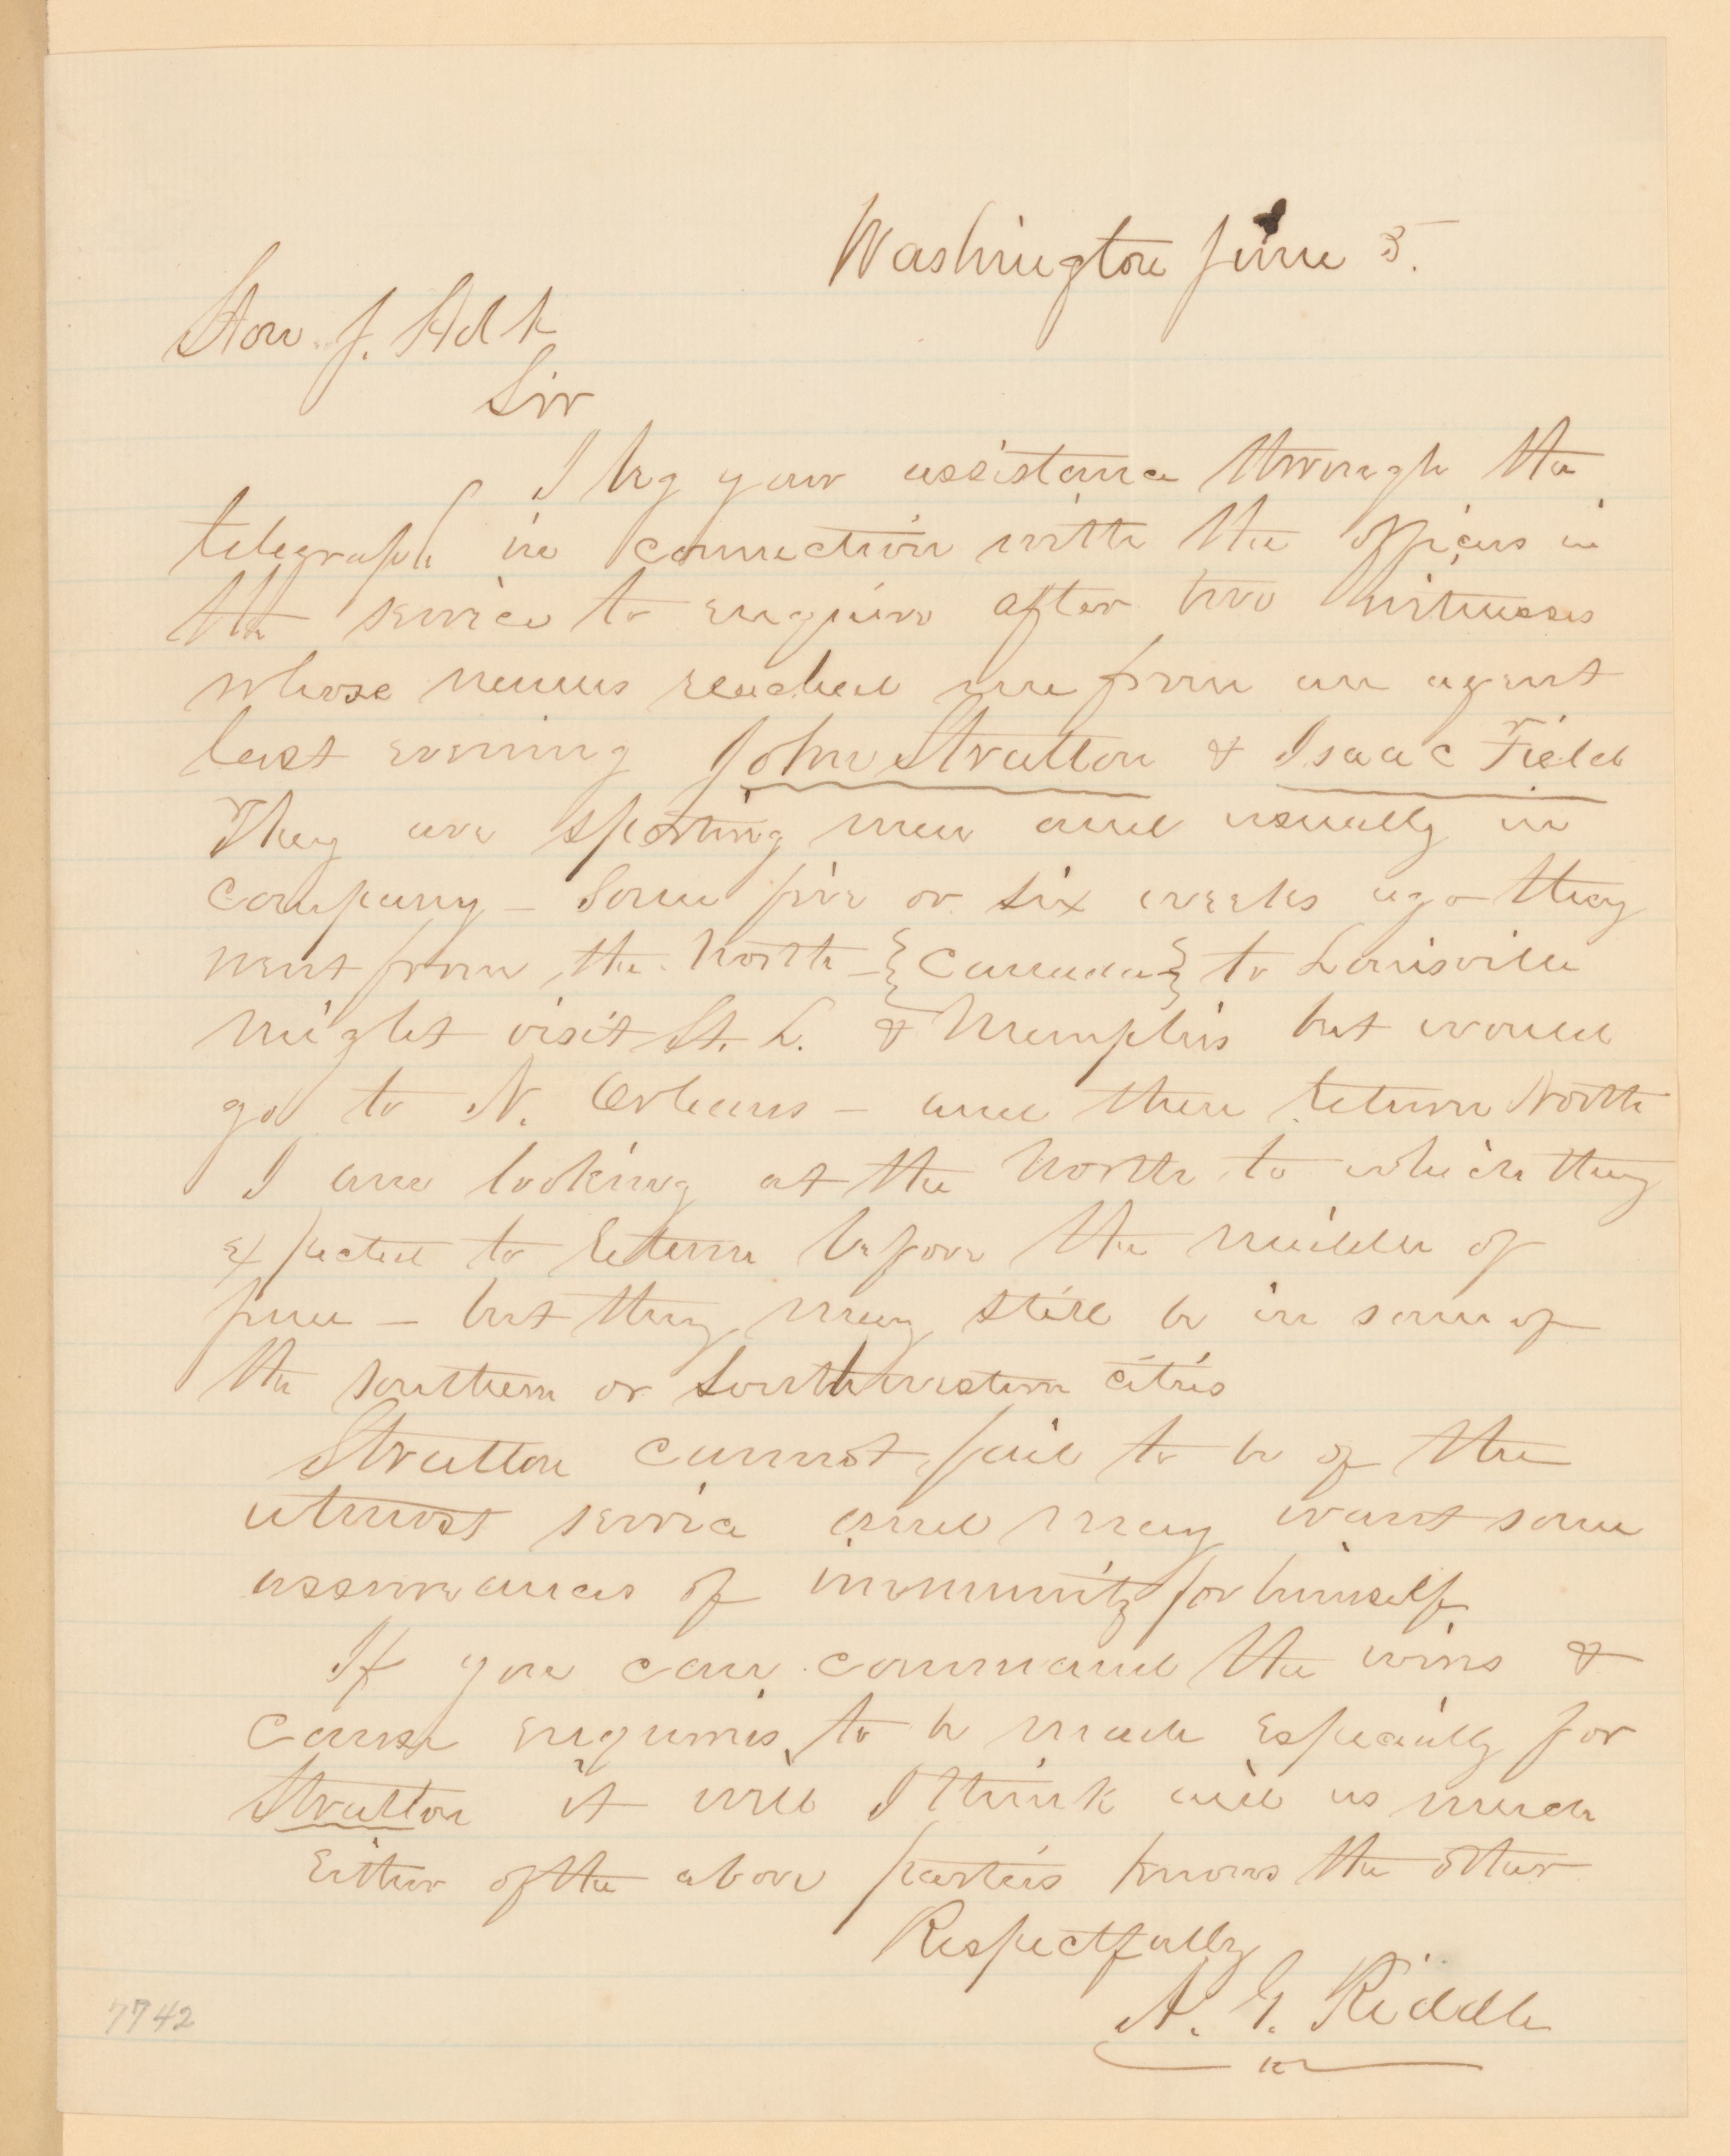 Washington June 5.
Hon. J. Holt
Sir
I beg your assistance through the
telegraph in connection with the officers in
the service to enquire after two witnesses
whose names reached me from an agent
last evening John Stratton & Isaac Field
They are sporting men and usually in
company – Some five or six weeks ago they
went from the North – {Canada} to Louisville
might visit St. L. & Memphis but would
go to N. Orleans – and then return North
I am looking at the North to which they
expected to return before the middle of
June – but they may still be in some of
the southern or Southwestern cities
Stratton cannot fail to be of the
utmost service and may want some
assurances of immunity for himself
If you can command the wires &
cause enquiries to be made especially for
Stratton it will I think aid us much
Either of the above parties knows the other
Respectfully
A. G. Riddle
7742